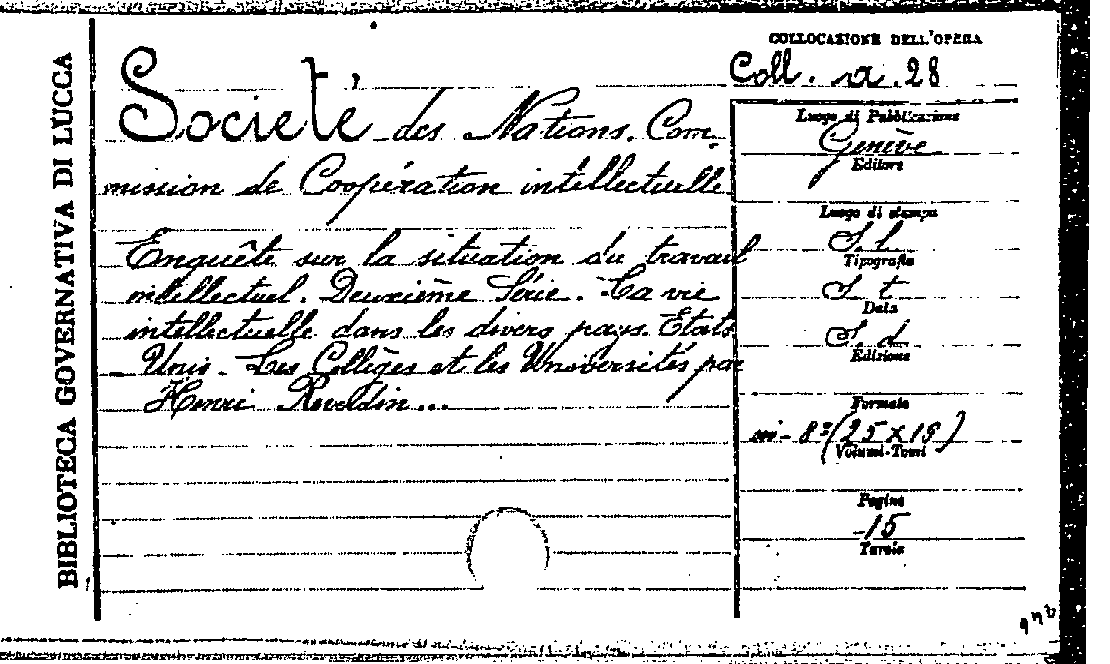 BIBLIOTECA GOVERNATIVA DI LUCCA
Societé des Nations. Com-
mission de Coopération intellectuelle
Enquête sur la situation du travail
intellectuel. Deuxième Série. La vie
intellectuelle dans les divers pays. Etats
Unis - Les Collèges et les Universités par
Henri Reverdin...
COLLOCAZIONE DELL'OPERA
Coll. a. 28
Luogo di Pubblicazione
Genève
Editore
Luogo di stampa
S. l.
Tipografia
S. t
Data
S. d.
Edizione
Formato
in-8º (25 x 19)
Volumi-Tomi
Pagine
15
Tavole